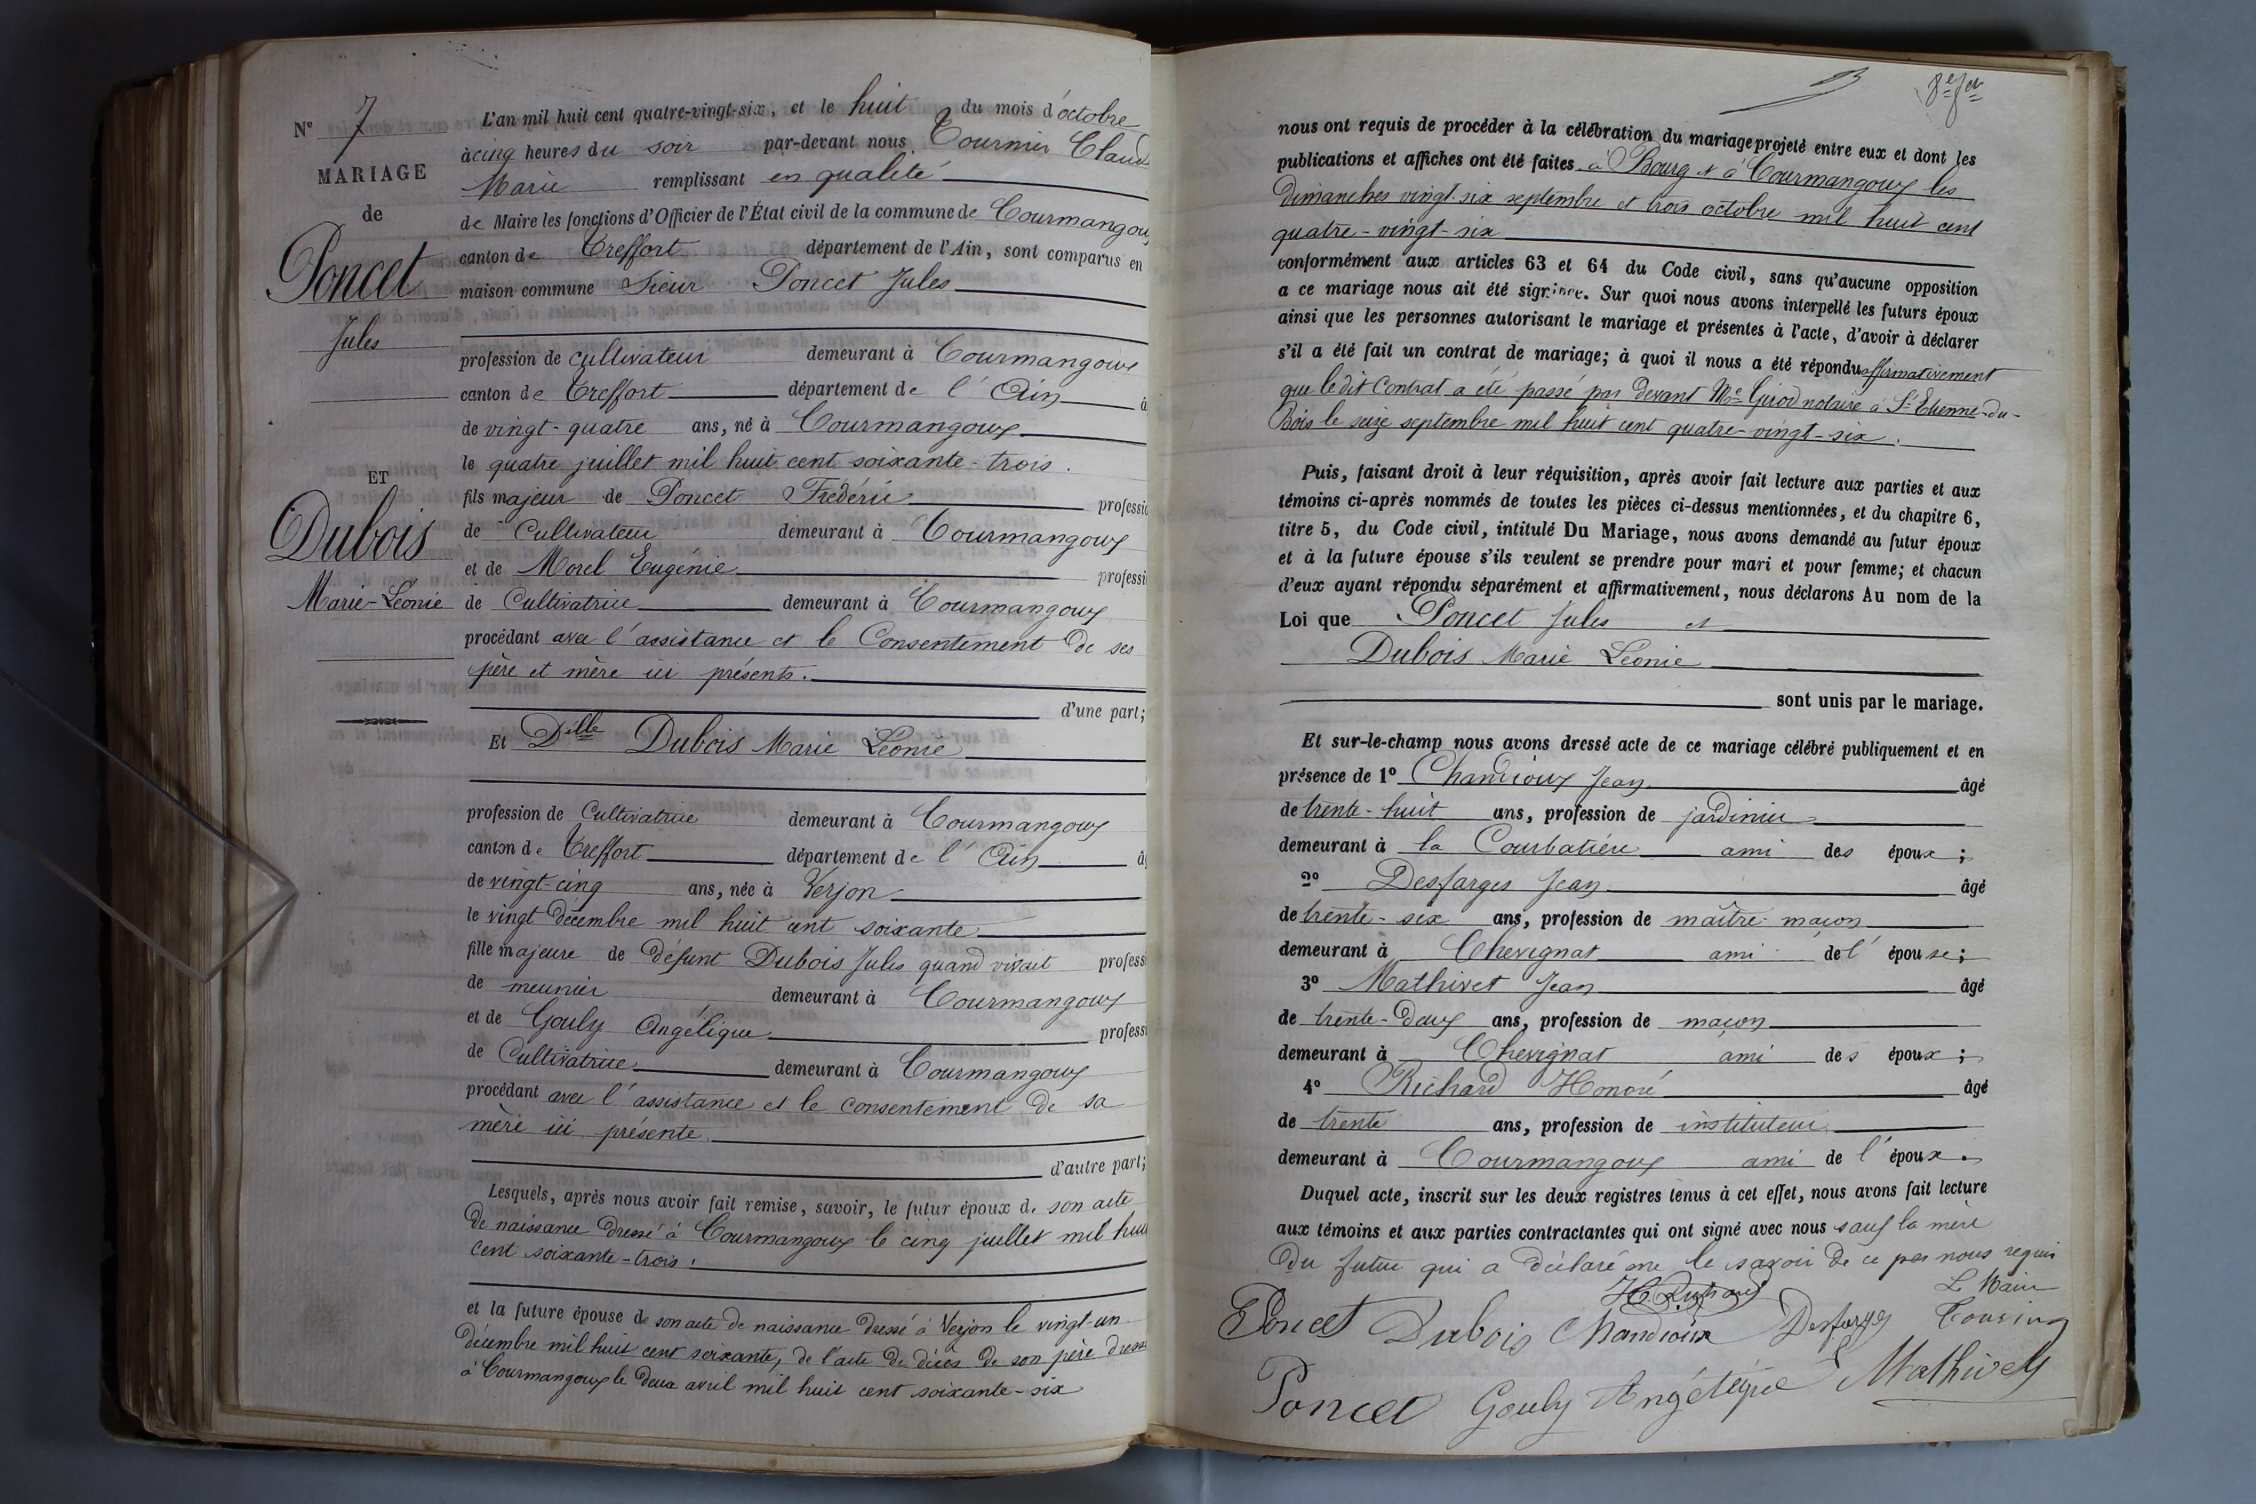 N° 7
MARIAGE
de
Poncet
Jules
ET
Dubois
Marie-Léonie
L'an mil huit cent quatre-vingt-six, et le huit du mois d'octobre
à cinq heures du soir par-devant nous
Marie remplissant en qualité
de Maire les fonctions d'Officier de l'État civil de la commune de Courmangoux
canton de Treffort département de l'Ain, sont comparus en
maison commune Sieur Poncet Jules
profession de cultivateur demeurant à Courmangoux
canton de Treffort département de l'Ain â
de vingt-quatre ans, né à Courmangoux
le quatre juillet mil huit cent soixante-trois.
fils majeur de Poncet Frédéric professio
de Cultivateur demeurant à Courmangoux
et de Morel Eugénie professi
de Cultivatrice demeurant à Courmangoux
procédant avec l'assistance et le Consentement de ses
père et mère ici présents.
d'une part;
Et Dlle Dubois Marie Léonie
profession de Cultivatrice demeurant à Courmangoux
canton de Treffort département de l'Ain â
de vingt-cinq ans, née à Verjon
le vingt décembre mil huit cent soixante
fille majeure de défunt Dubois Jules quand vivait profess
de meunier demeurant à Courmangoux
et de Gouly Angélique professi
de Cultivatrice demeurant à Courmangoux
procédant avec l'assistance et le consentement de sa
mère ici présente
d'autre part;
Lesquels, après nous avoir fait remise, savoir, le futur époux de son acte
de naissance dressé à Courmangoux le cinq juillet mil huit
cent soixante-trois;
et la future épouse de son acte de naissance dressé à Verjon le vingt-un
décembre mil huit cent soixante, de l'acte de décès de son père dressé
à Courmangoux le deux avril mil huit cent soixante-six
nous ont requis de procéder à la célébration du mariage projeté entre eux et dont les
publications et affiches ont été faites à Bourg et à Courmangoux les
dimanches vingt-six septembre et trois octobre mil huit cent
quatre-vingt-six
conformément aux articles 63 et 64 du Code civil, sans qu'aucune opposition
a ce mariage nous ait été signifiée. Sur quoi nous avons interpellé les futurs époux
ainsi que les personnes autorisant le mariage et présentes à l'acte, d'avoir à déclarer
s'il a été fait un contrat de mariage; à quoi il nous a été répondu affirmativement
que ledit Contrat a été passé par devant Me Girod notaire à St-Etienne-du-
Bois le seize septembre mil huit cent quatre-vingt-six.
Puis, faisant droit à leur réquisition, après avoir fait lecture aux parties et aux
témoins ci-après nommés de toutes les pièces ci-dessus mentionnées, et du chapitre 6,
titre 5, du Code civil, intitulé Du Mariage, nous avons demandé au futur époux
et à la future épouse s'ils veulent se prendre pour mari et pour femme; et chacun
d'eux ayant répondu séparément et affirmativement, nous déclarons Au nom de la
Loi que Poncet Jules et
Dubois Marie Léonie
sont unis par le mariage.
Et sur-le-champ nous avons dressé acte de ce mariage célébré publiquement et en
présence de 1° Chandioux Jean âgé
de trente-huit ans, profession de jardinier
demeurant à la Courbatière ami des époux;
2° Desfarges Jean âgé
de trente-six ans, profession de maître-maçon
demeurant à Chevignat ami de l'épouse;
3° Mathivet Jean âgé
de trente-deux ans, profession de maçon
demeurant à Chevignat ami des époux;
4° Richard Honoré âgé
de trente ans, profession de instituteur
demeurant à Courmangoux ami de l'époux.
Duquel acte, inscrit sur les deux registres tenus à cet effet, nous avons fait lecture
aux témoins et aux parties contractantes qui ont signé avec nous sauf la mère
du futur qui a déclaré ne le savoir de ce par nous requis
H. Richard Le Maire
Poncet Dubois Chandioux Desfarges
Poncet Gouly Angélique Mathivet